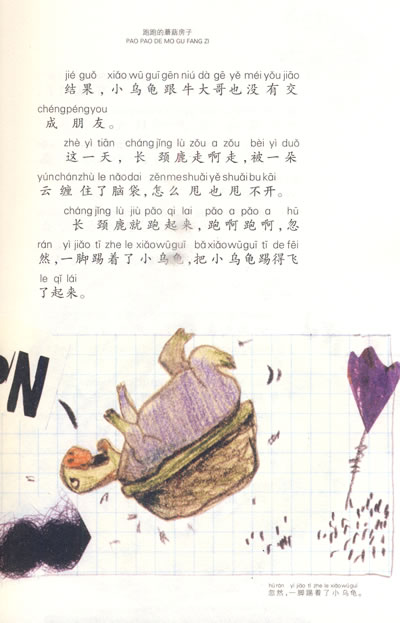 跑跑的蘑菇房子
PAO PAO DE MO GU FANG ZI
jié guǒ xiǎo wū guī gēn niú dà gē yě méi yǒu jiāo
结果,小乌龟跟牛大哥也没有交
chéng péng you
成朋友。
zhè yì tiān cháng jǐng lù zǒu a zǒu bèi yì duǒ
这一天,长颈鹿走啊走,被一朵
yún chán zhù le nǎo dai zěn me shuǎi yě shuǎi bu kāi
云缠住了脑袋,怎么甩也甩不开。
cháng jǐng lù jiù pǎo qi lai pǎo a pǎo a hū
长颈鹿就跑起来,跑啊跑啊,忽
rán yì jiǎo tī zhe le xiǎo wū guī bǎ xiǎo wū guī tī de fēi
然,一脚踢着了小乌龟,把小乌龟踢得飞
le qǐ lái
了起来。
ON
hū rán yì jiǎo tī zhe le xiǎo wū guī
忽然,一脚踢着了小乌龟。